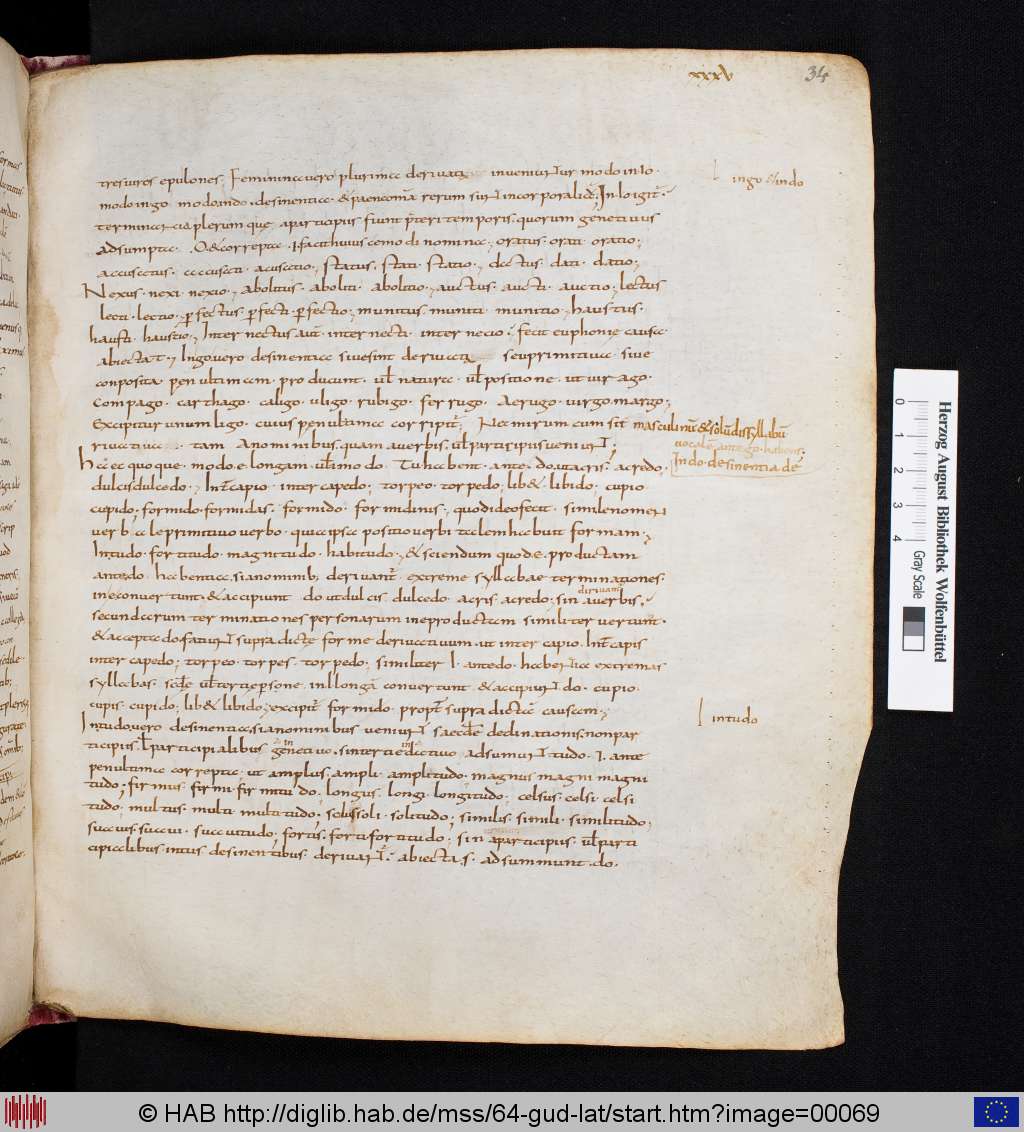 xxxv 34
tres uiros epulones; Feminina uero plurima deriuata inueniuntur modo in io.
ingo & indo
modo in go modo in do. desinentia. & paene omnia rerum sunt incorporalium; In io igitur.
terminantia plerumque a participiis fiunt preteri temporis. quorum genetiuus
adsumpta .O. & correpta .I. facit huiuscemodi nomina; oratus. orati. oratio;
accusatus. accusati. acusatio; status. stati. statio; datus. dati. datio;
Nexus. nexi. nexio; abolitus. aboliti. abolitio; auctus. aucti. auctio; lectus
lecti. lectio; perfectus. perfecti. perfectio; munitus muniti. munitio; haustus.
hausti. haustio; Inter nectus aut internecti. inter necio; fecit euphonie causa
abiecta t; In go uero desinentia siue sint deriuatiua seu primitiua siue
conposita penultimam. producunt. uel natura. uel positione. ut uirago.
Compago. carthago. caligo. uligo. rubigo. ferrugo. Aerugo. uirgo. margo;
Excipitur unum ligo. cuius penultima corripitur; Nec mirum cum sit masculinum & solum dissyllabum
uocalem ante go. habens;
riuatiua tam A nominibus. quam a uerbis. uel participiis ueniunt;
In do. desinentia de
haec quoque. modo .e. longam. ultimo do. habent. ante. do. ut acris. acredo.
dulcis dulcedo; Intercapio inter capedo; torpeo. torpedo; lib& libido; cupio
cupido; formido. formidas. formido. formidinis. quod ideo fecit. simile nomen
uerbale primitiuo uerbo. quia ipsa positio uerbi talem habuit formam;
In tudo. fortitudo. magnitudo. habitudo; & sciendum quod .e. productam
ante do. habentia. si a nominib; deriuantur. extreme syllabae terminationes.
in e conuertunt & accipiunt do ut dulcis dulcedo. acris acredo; sin a uerbis.
diriuantur
secundarum terminationes personarum in e productam similiter uertunt.
& accepta do faciunt supra dicte forme deriuatiuum. ut inter capio. Intercapis
inter capedo; torpeo. torpes. torpedo; similiter I. ante do. habentia extremas
syllabas. secunde uel tertie persone. in I longam conuertunt & accipiunt do. cupio.
cupis. cupido; lib& libido; excipitur formido. propter supra dictam causam;
intudo
In tudo uero desinentia si a nominibus ueniunt secunde declinationis. non par
ticipiis. uel participialibus genetiuo. sin tertie datiuo adsumunt tudo. I. ante
penultima correpta. ut amplus. ampli. amplitudo. magnus magni magni
tudo; firmus. firmi. firmitudo; longus. longi. longitudo; celsus celsi. celsi
tudo; multus. multi. multitudo; solus soli. solitudo; similis. simili. similitudo;
suauis. suaui. suauitudo; fortis. forti fortitudo; sin a participiis uel parti
cipalibus in tus desinentibus deriuantur. abiecta .s. adsummunt .do.
Herzog August Bibliothek Wolfenbüttel
0 1 2 3 4
Gray Scale
© HAB http://diglib.hab.de/mss/64-gud-lat/start.htm?image=00069